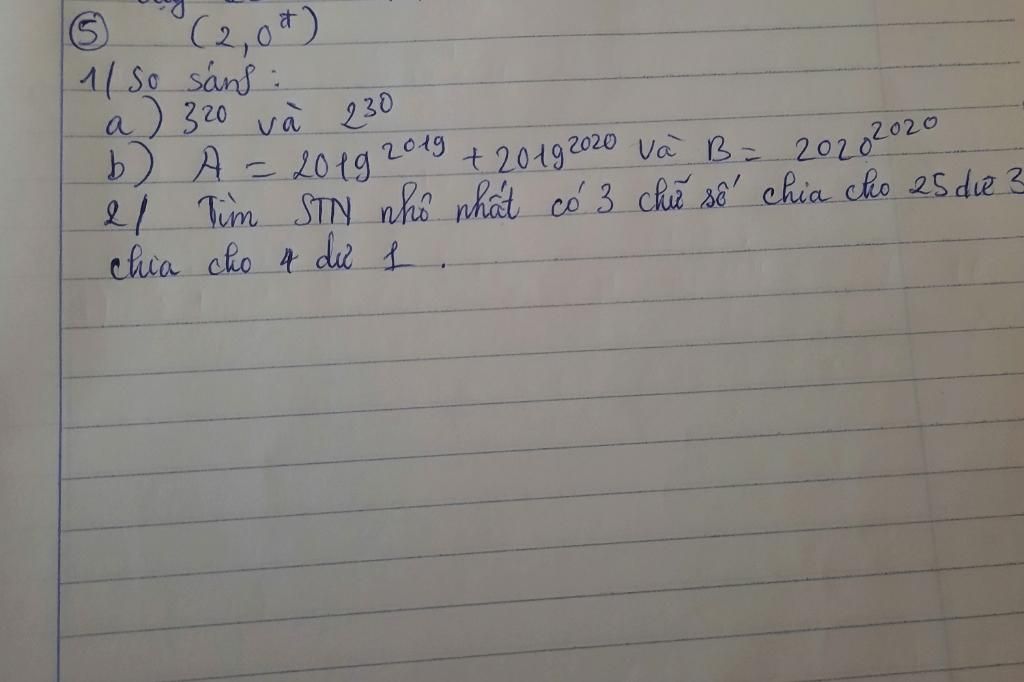 ⑤ (2,0đ)
1/ So sánh :
a) 3²⁰ và 2³⁰
b) A = 2019²⁰¹⁹ + 2019²⁰²⁰ và B = 2020²⁰²⁰
2/ Tìm STN nhỏ nhất có 3 chữ số chia cho 25 dư 3
chia cho 4 dư 1 .